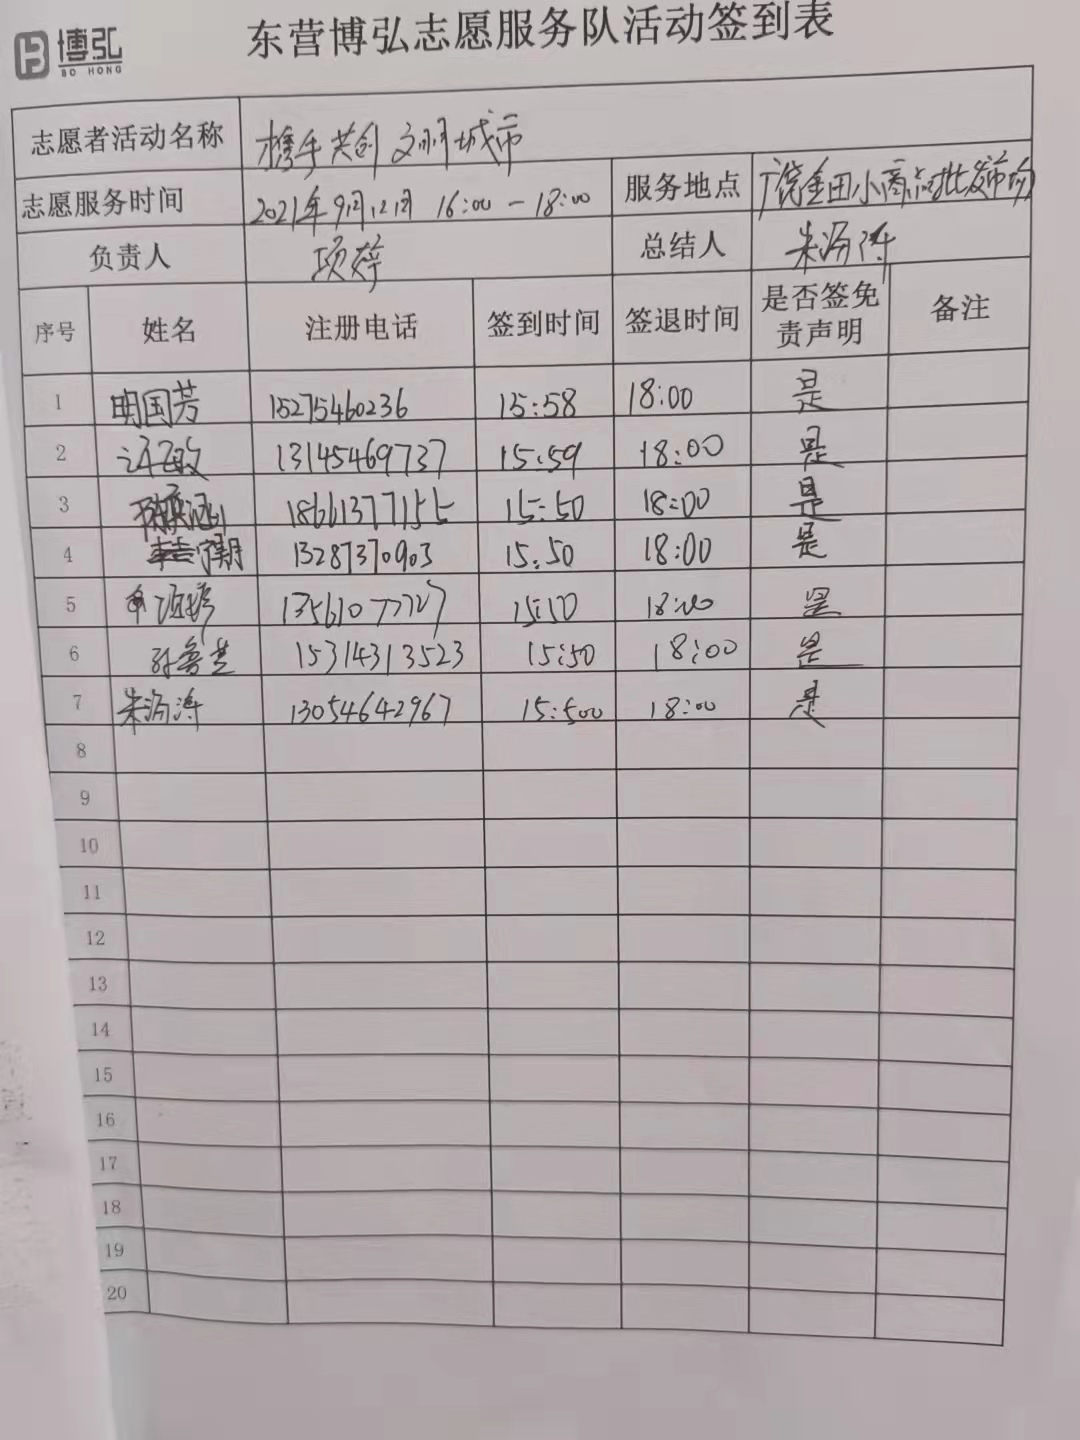 博弘
BO HONG
东营博弘志愿服务队活动签到表
志愿者活动名称 携手共创文明城市
志愿服务时间 2021年9月12日 16:00-18:00 服务地点 广饶金田小商品批发市场
负责人 项婷 总结人 朱海涛
序号 姓名 注册电话 签到时间 签退时间 是否签免责声明 备注
1 明国芳 15275460236 15:58 18:00 是
2 许政 13145469737 15:59 18:00 是
3 18661377155 15:50 18:00 是
4 13287370903 15:50 18:00 是
5 项婷 13561077727 18:00 是
6 孙鲁芸 15314313523 15:50 18:00 是
7 朱海涛 13054642967 15:500 18:00 是
8
9
10
11
12
13
14
15
16
17
18
19
20